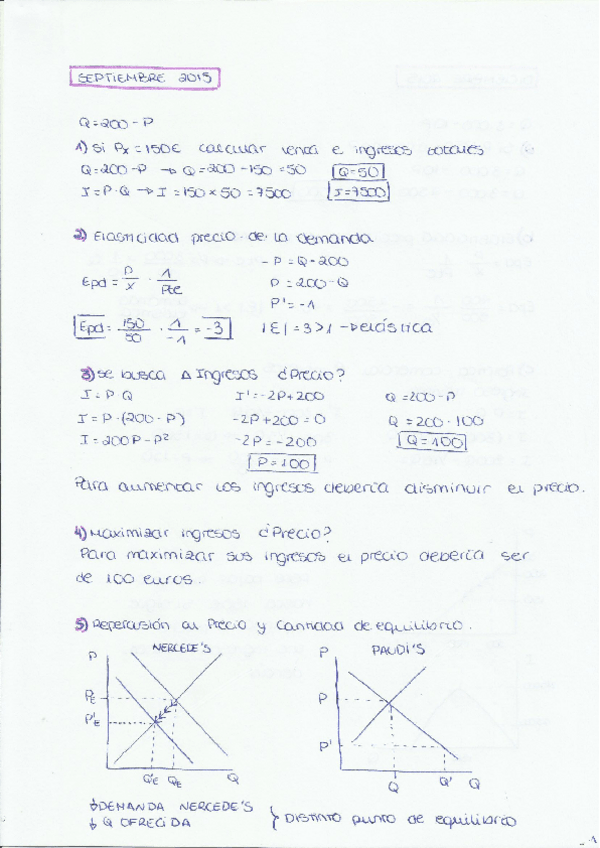 SEPTIEMBRE 2015
Q=200-P
1) Si Px=150€ calcular venta e ingresos totales
Q=200-P → Q=200-150=50 Q=50
I=P·Q → I=150×50=7500 I=7500
2) Elasticidad precio de la demanda
-P=Q-200
Epd= P/X · 1/Pte P=200-Q
P'=-1
Epd= 150/50 · 1/-1 =-3 |E|=3>1 → elástica
3) Se busca Δ Ingresos ¿Precio?
I=P Q I'=-2P+200 Q=200-P
I=P·(200-P) -2P+200=0 Q=200-100
I=200P-P² -2P=-200 Q=100
P=100
Para aumentar los ingresos debería disminuir el precio.
4) Maximizar ingresos ¿Precio?
Para maximizar sus ingresos el precio debería ser
de 100 euros.
5) Repercusión al Precio y cantidad de equilibrio.
P NERCEDE'S P PAUDI'S
PE P
P'E P'
Q'E QE Q Q Q' Q
↓DEMANDA NERCEDE'S
↓Q OFRECIDA } DISTINTO punto de equilibrio
1